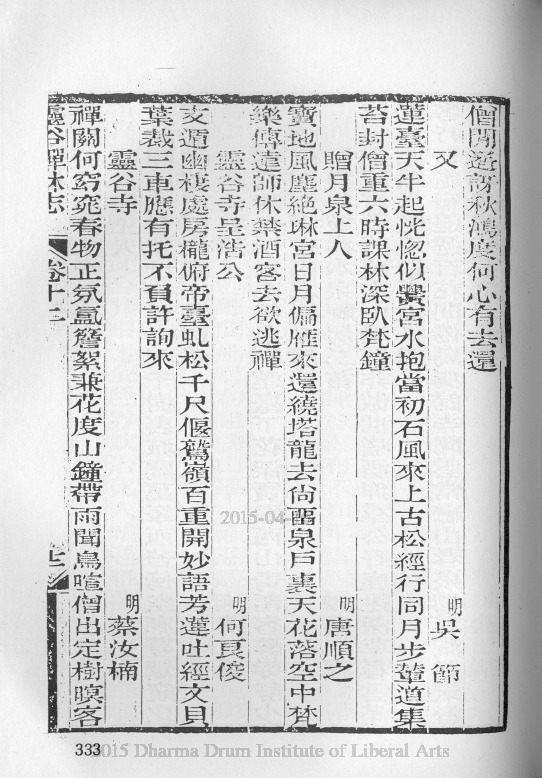 僧閒遊訝秋鴻度何心有去還
又 明吳節
蓮臺天半起恍惚似黌宮水抱當初石風來上古松經行同月步輦道集
苔封僧重六時課林深臥梵鐘
贈月泉上人 明唐順之
寶地風塵絶琳宮日月偏雁來還繞塔龍去尙畱泉戶裏天花落空中梵
樂傳達師休禁酒客去欲逃禪
靈谷寺呈浩公 明何良俊
支遁幽棲處房櫳俯帝臺虬松千尺偃鷲嶺百重開妙語芳蓮吐經文貝
葉裁三車應有托不負許詢來
靈谷寺 明蔡汝楠
禪關何窈窕春物正氛氳簷絮兼花度山鐘帶雨聞鳥喧僧出定樹暝客
靈谷禪林志 卷十三 十二
333
2015-04-
2015 Dharma Drum Institute of Liberal Arts